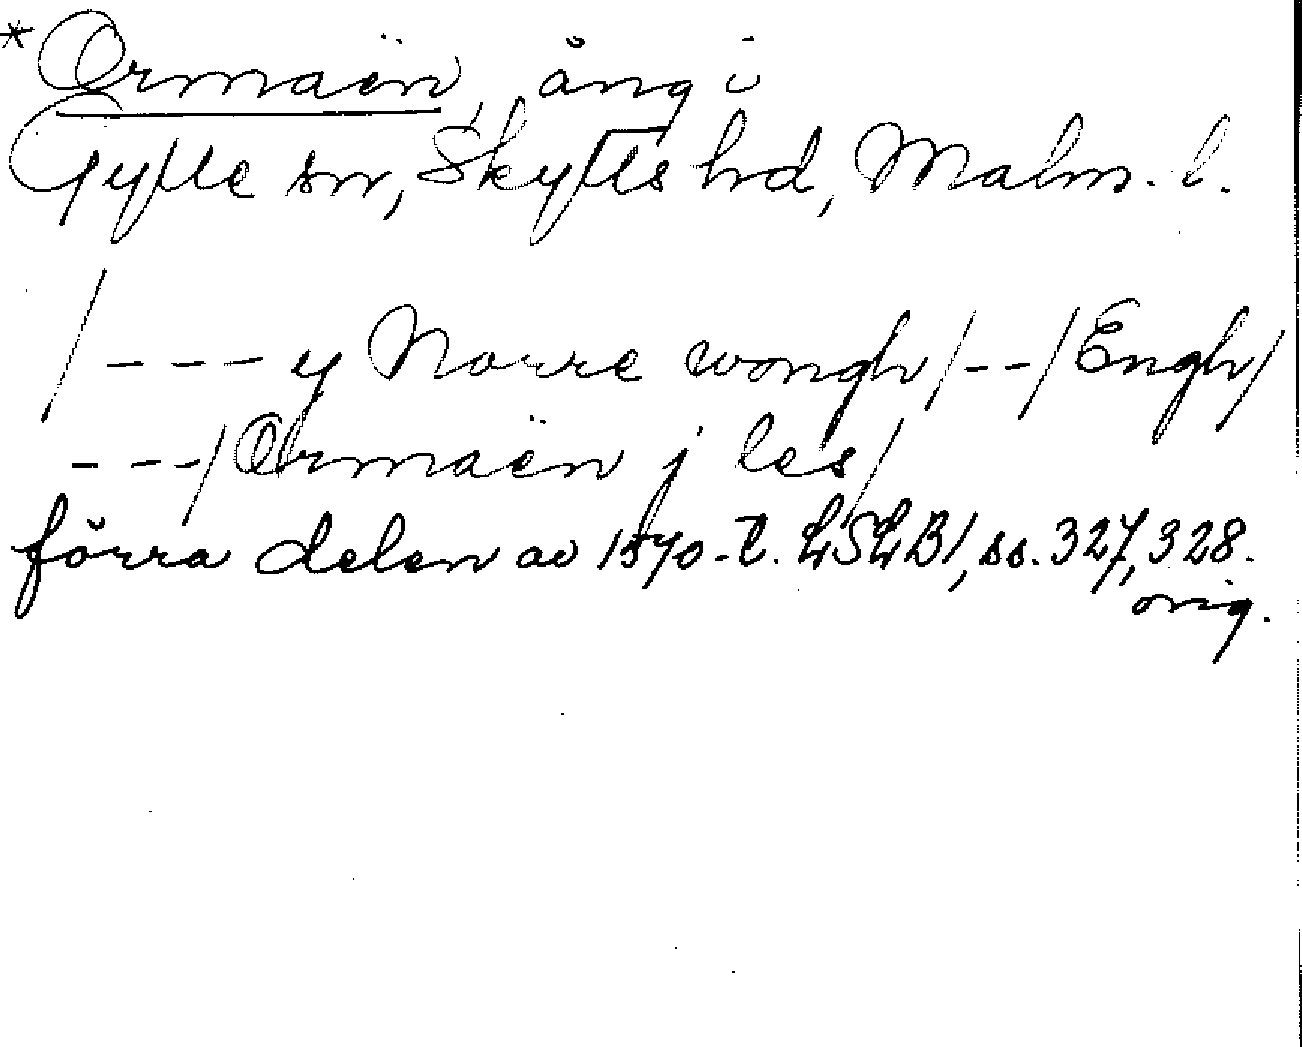 *Ormaën, äng i
Gylle sn, Skytts hd, Malm. l.
/---y Norre wongh/--/Engh/
---/Ormaën j les/
förra delen av 1570-t. LSLB1, ss. 327, 328.
orig.